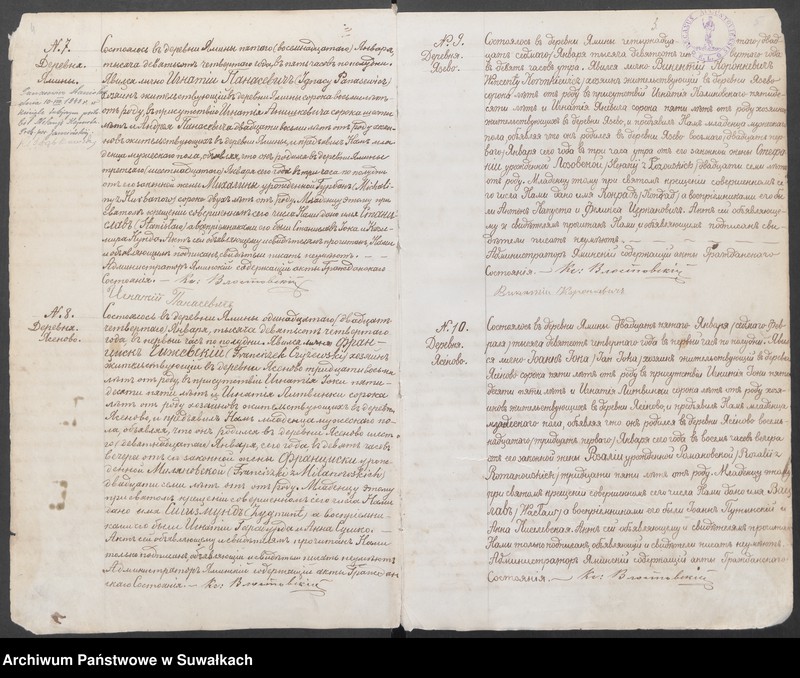 N. 7.
Деревня.
Ямины.
Состоялось въ деревни Ямины пятаго (восемнадцатаго) Января,
тысяча девятьсотъ четвертаго года, въ пять часовъ пополудни.
Явился лично Игнатій Панасевичъ (Ignacy Panasewicz)
хозяинъ жительствующій въ деревни Ямины сорока восьми лѣтъ
отъ роду, въ присутствіи Игнатія
лѣтъ и Андрея Панасевича двадцати восьми лѣтъ отъ роду хозя-
иновъ жительствующихъ въ деревни Ямины, и предъявилъ Намъ мла-
денца мужескаго пола, объявляя, что онъ родился въ деревни Ямины
третьяго (шестнадцатаго) Января, сего года въ три часа по полудни
отъ его законной жены Михалины урожденной Гурбанъ (Michali-
ny z Hurbanów) сорока двухъ лѣтъ отъ роду. Младенцу этому при
святомъ крещеніи совершенномъ сего числа Намъ дано имя Стани-
славъ (Stanisław) а воспріемниками его были Станиславъ Іока и
Актъ сей объявляющему и свидѣтелямъ прочитанъ, Нами
и объявляющимъ подписанъ, свидѣтели писать неумѣютъ. —
Администраторъ Яминскій содержащій акты Гражданскаго
Состоянія. — Кс: Влостовскій
Игнатій Панасевич
N. 8.
Деревня.
Ясеново.
Состоялось въ деревни Ямины одинадцатаго (двадцать
четвертаго) Января, тысяча девятьсотъ четвертаго
года, въ первый часъ по полудни. Явился лично Фран-
цишекъ Чижевскій (Franciszek Czyżewski) хозяинъ
жительствующій въ деревни Ясеново тридцати восьми
лѣтъ отъ роду, въ присутствіи Игнатія Іоки пяти-
десяти пяти лѣтъ и Игнатія Литвинки сорока
лѣтъ отъ роду хозяиновъ жительствующихъ въ деревни
Ясеново, и предъявилъ Намъ младенца мужескаго по-
ла, объявляя, что онъ родился въ деревни Ясеново шест-
го (девятнадцатаго) Января, сего года въ девять часовъ
вечера отъ его законной жены Франциски урож-
денной Милановской (Franciszki z Milanowskich)
двадцати семи лѣтъ отъ роду. Младенцу этому
при святомъ крещеніи совершенномъ сего числа Нами
дано имя Сигизмундъ (Zygmunt), а воспріемни-
ками его были Игнатій и Анна
Актъ сей объявляющему и свидѣтелямъ прочитанъ Нами
только подписанъ, объявляющій и свидѣтели писать неумѣютъ
Администраторъ Яминскій содержащій акты Граждан-
скаго Состоянія. — Кс: Влостовскій
3
N. 9.
Деревня.
Язево.
Состоялось въ деревни Ямины
Января тысяча девятьсотъ четвертаго года
въ девять часовъ утра. Явился лично Викентій Коронкевичъ
хозяинъ жительствующій въ деревни Язево
сорока лѣтъ отъ роду въ присутствіи Игнатія пятиде-
сяти лѣтъ и Игнатія сорока пяти лѣтъ отъ роду хозяиновъ
жительствующихъ въ деревни Язево, и предъявилъ Намъ младенца мужескаго
пола объявляя что онъ родился въ деревни Язево восьмаго (двадцать пер-
ваго) Января сего года въ три часа утра отъ его законной жены
урожденной двадцати семи лѣтъ
отъ роду. Младенцу этому при святомъ крещеніи совершенномъ се-
го числа Нами дано имя Конрадъ (Konrad) а воспріемниками его бы-
ли Антонъ и Феликса Актъ сей объявляюще-
му и свидѣтелямъ прочитанъ Нами и объявляющимъ подписанъ сви-
дѣтели писать неумѣютъ. —
Администраторъ Яминскій содержащій акты Гражданскаго
Состоянія. — Кс: Влостовскій
Викентій Коронкевичъ
N. 10.
Деревня.
Ясеново.
Состоялось въ деревни Ямины двадцать пятаго Января (седьмаго Фев-
раля) тысяча девятьсотъ четвертаго года въ первый часъ по полудни. Явил-
ся лично Іоаннъ Іока (Jan Joka) хозяинъ жительствующій въ деревни
Ясеново сорока пяти лѣтъ отъ роду въ присутствіи Игнатія Іоки пяти-
десяти пяти лѣтъ и Игнатія Литвинки сорока лѣтъ отъ роду хозя-
иновъ жительствующихъ въ деревни Ясеново, и предъявилъ Намъ младенца
мужескаго пола, объявляя, что онъ родился въ деревни Ясеново восем-
надцатаго (тридцать перваго) Января сего года въ восемь часовъ вечера
отъ его законной жены Розаліи урожденной Романовской (Rozalii z
Romanowskich) тридцати пяти лѣтъ отъ роду. Младенцу этому
при святомъ крещеніи совершенномъ сего числа Нами дано имя Вац-
лавъ (Wacław) а воспріемниками его были Іоаннъ и
Анна Актъ сей объявляющему и свидѣтелямъ прочитанъ
Нами только подписанъ, объявляющій и свидѣтели писать неумѣютъ.
Администраторъ Яминскій содержащій акты Гражданскаго
Состоянія. — Кс: Влостовскій
Archiwum Państwowe w Suwałkach